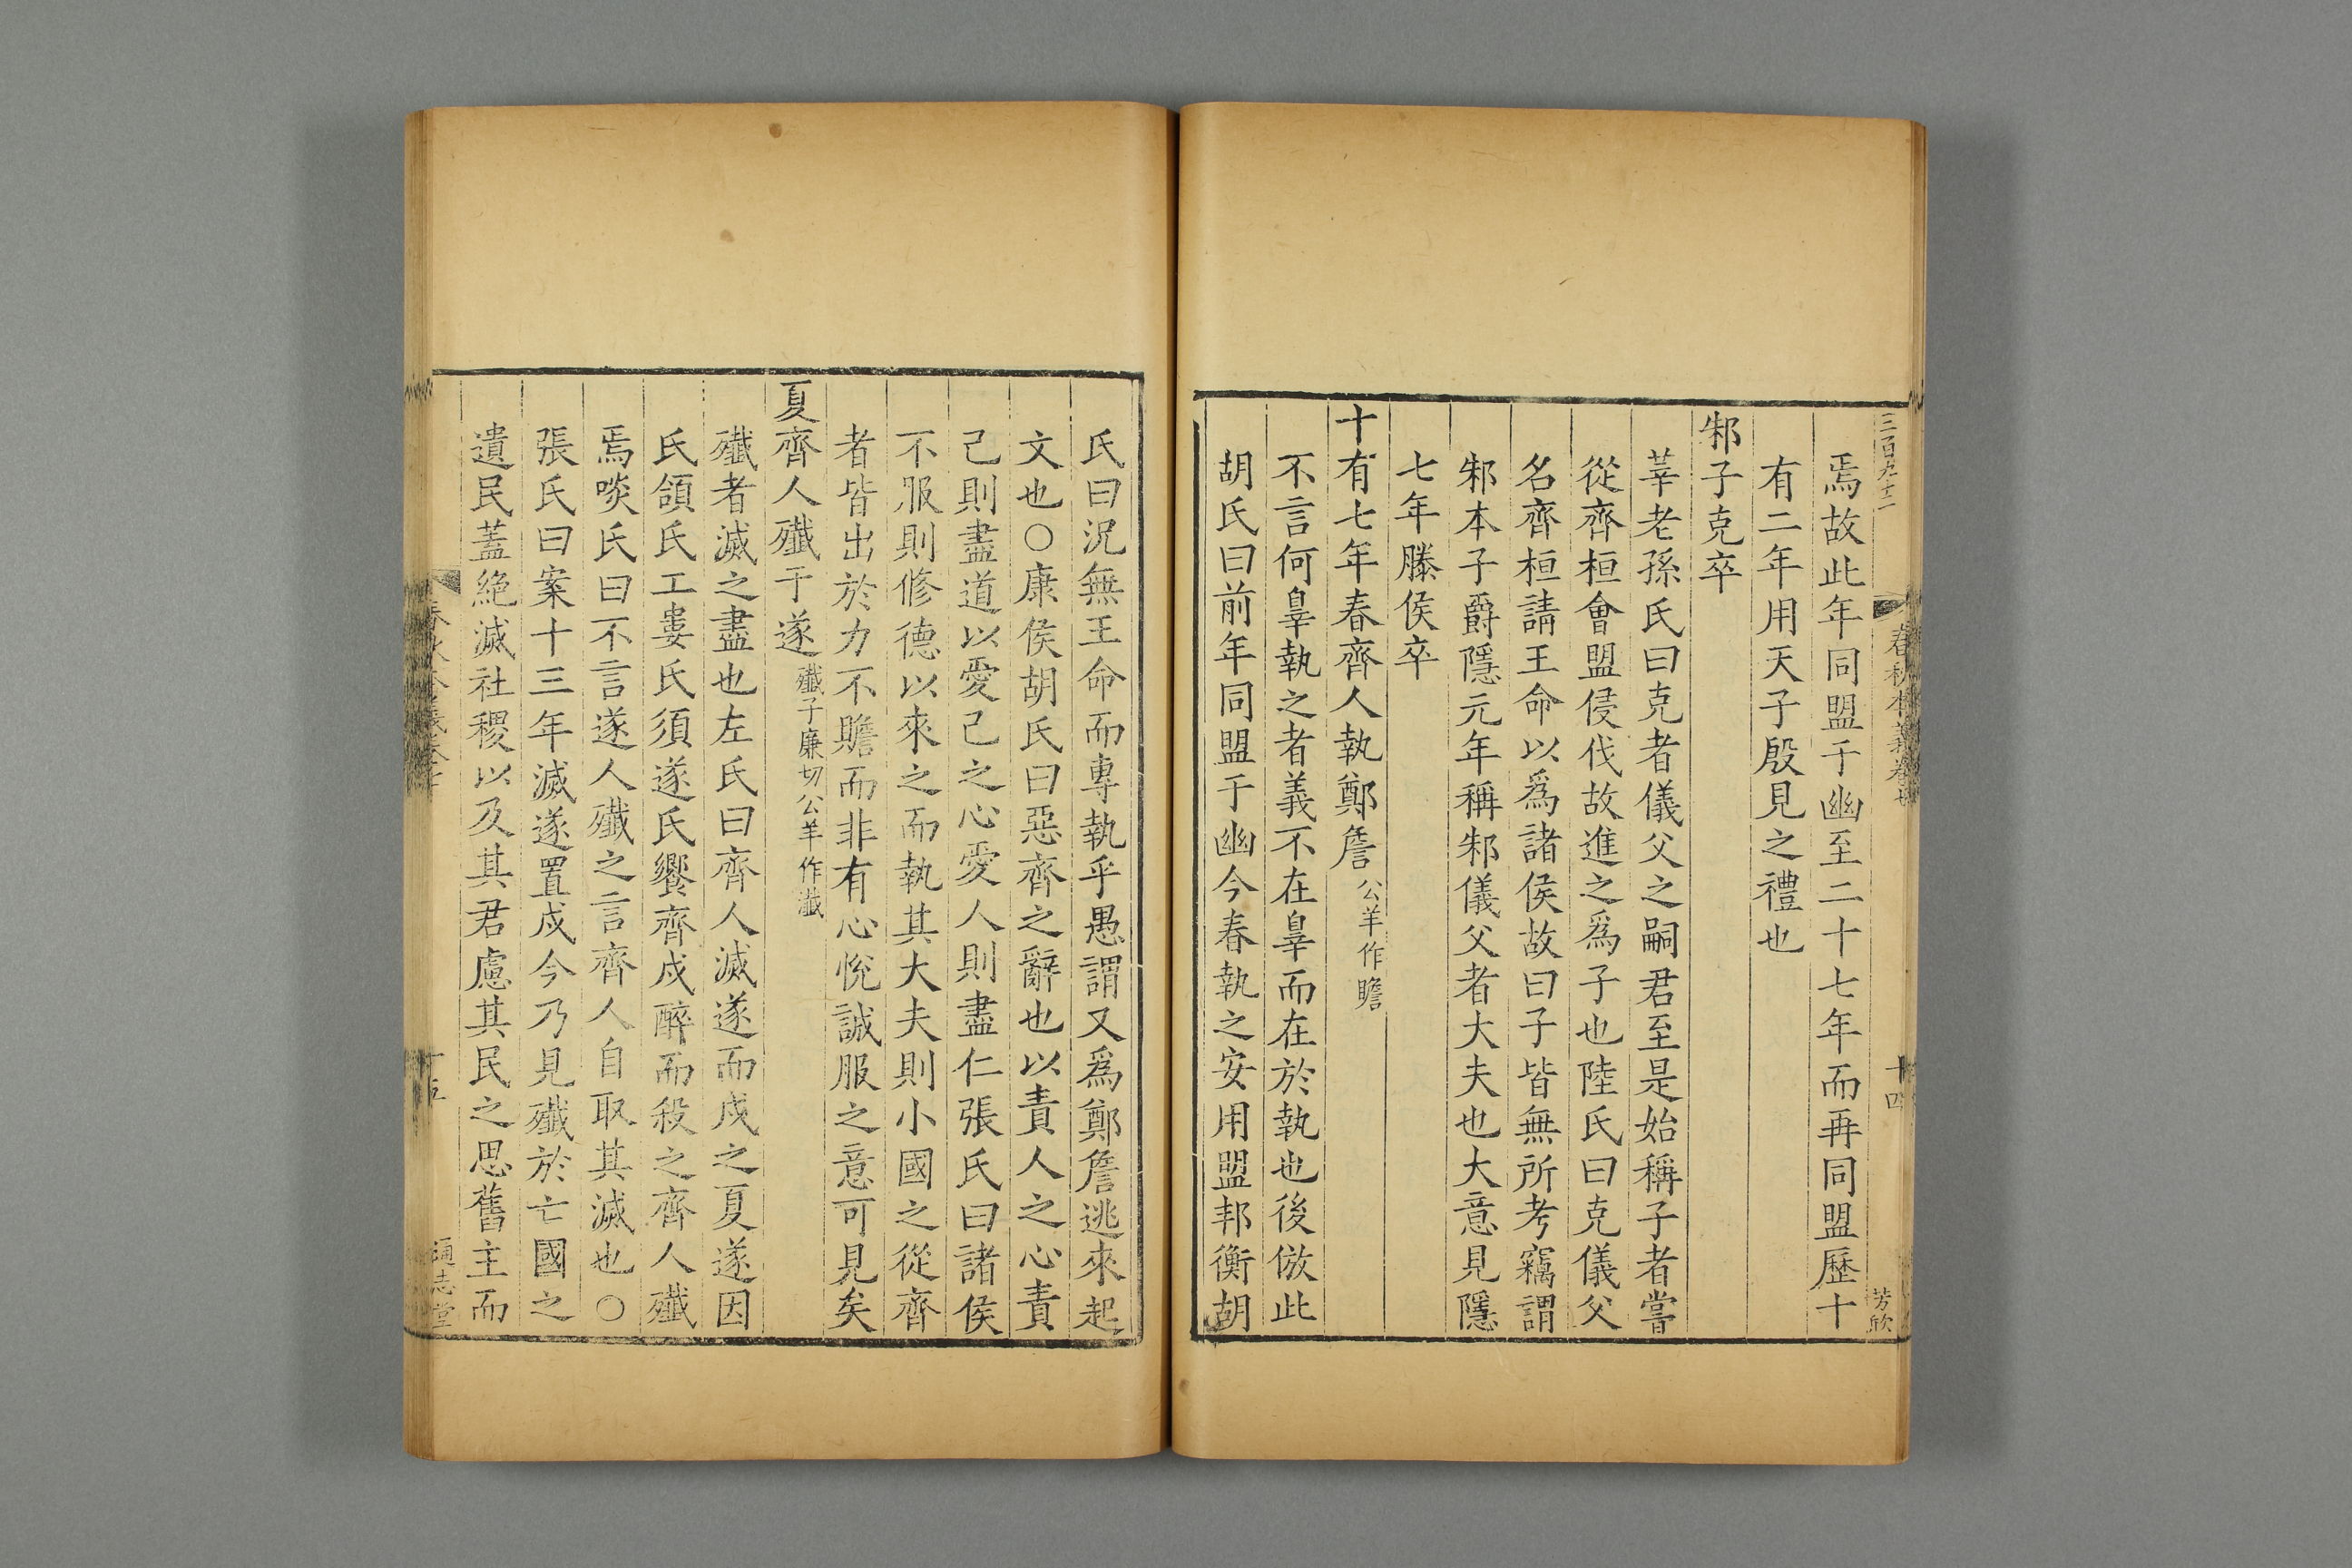 三百九十二
春秋本義卷
十四
芳欣
焉故此年同盟于幽至二十七年而再同盟歷十
有二年用天子殷見之禮也
邾子克卒
莘老孫氏曰克者儀父之嗣君至是始稱子者嘗
從齊桓會盟侵伐故進之爲子也陸氏曰克儀父
名齊桓請王命以爲諸侯故曰子皆無所考竊謂
邾本子爵隱元年稱邾儀父者大夫也大意見隱
七年滕侯卒
十有七年春齊人執鄭詹公羊作瞻
不言何辠執之者義不在辠而在於執也後倣此
胡氏曰前年同盟于幽今春執之安用盟邦衡胡
氏曰況無王命而專執乎愚謂又爲鄭詹逃來起
文也〇康侯胡氏曰惡齊之辭也以責人之心責
己則盡道以愛己之心愛人則盡仁張氏曰諸侯
不服則修德以來之而執其大夫則小國之從齊
者皆出於力不贍而非有心悅誠服之意可見矣
夏齊人殲于遂殲子廉切公羊作瀐
殲者滅之盡也左氏曰齊人滅遂而戍之夏遂因
氏頜氏工婁氏須遂氏饗齊戍醉而殺之齊人殲
焉啖氏曰不言遂人殲之言齊人自取其滅也〇
張氏曰案十三年滅遂置戍今乃見殲於亡國之
遺民蓋絕滅社稷以及其君慮其民之思舊主而
十五
通志堂